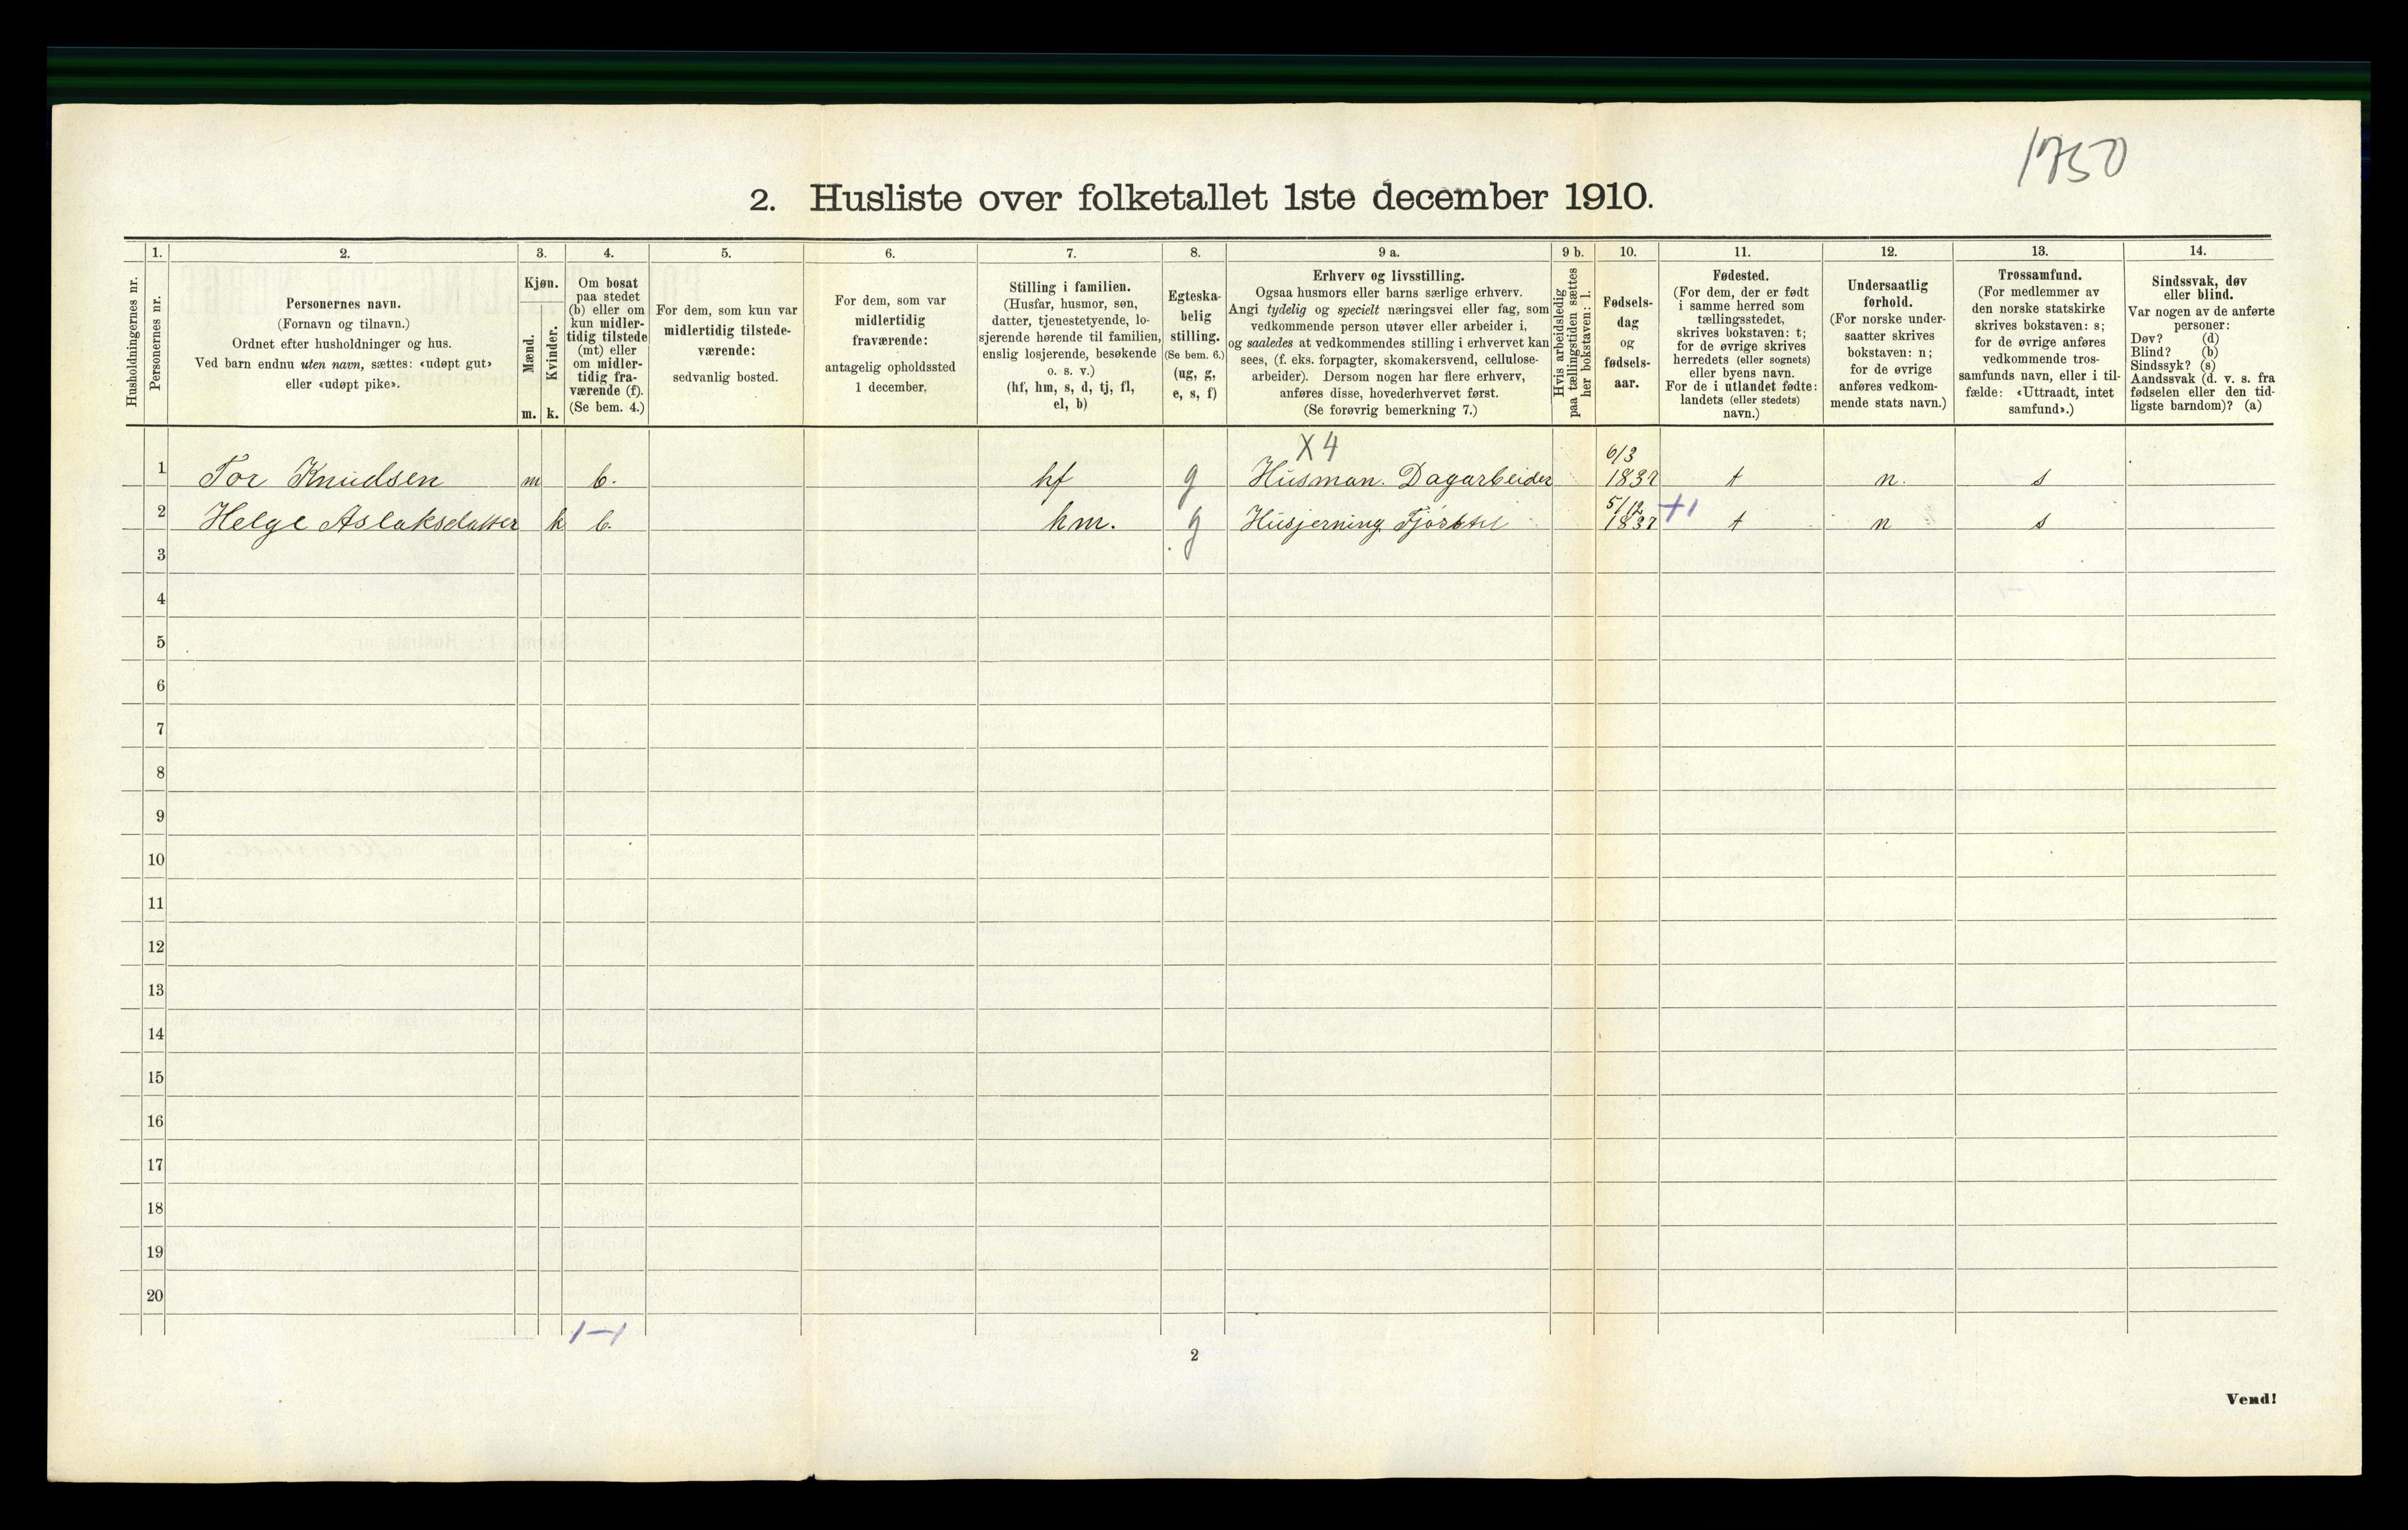 1750
2. Husliste over folketallet 1ste december 1910.
Husholdningernes nr.
1.
Personernes nr.
2.
Personernes navn.
(Fornavn og tilnavn.)
Ordnet efter husholdninger og hus.
Ved barn endnu uten navn, sættes: «udøpt gut»
eller «udøpt pike».
3.
Kjøn.
Mænd.
m.
Kvinder.
k.
4.
Om bosat
paa stedet
(b) eller om
kun midler-
tidig tilstede
(mt) eller
om midler-
tidig fra-
værende (f).
(Se bem. 4.)
5.
For dem, som kun var
midlertidig tilstede-
værende:
sedvanlig bosted.
6.
For dem, som var
midlertidig
fraværende:
antagelig opholdssted
1 december.
7.
Stilling i familien.
(Husfar, husmor, søn,
datter, tjenestetyende, lo-
sjerende hørende til familien,
enslig losjerende, besøkende
o. s. v.)
(hf, hm, s, d, tj, fl,
el, b)
8.
Egteska-
belig
stilling.
(Se bem. 6.)
(ug, g,
e, s, f)
9 a.
Erhverv og livsstilling.
Ogsaa husmors eller barns særlige erhverv.
Angi tydelig og specielt næringsvei eller fag, som
vedkommende person utøver eller arbeider i,
og saaledes at vedkommendes stilling i erhvervet kan
sees, (f. eks. forpagter, skomakersvend, cellulose-
arbeider). Dersom nogen har flere erhverv,
anføres disse, hovederhvervet først.
(Se forøvrig bemerkning 7.)
9 b.
Hvis arbeidsledig
paa tællingstiden sættes
her bokstaven: l.
10.
Fødsels-
dag
og
fødsels-
aar.
11.
Fødested.
(For dem, der er født
i samme herred som
tællingsstedet,
skrives bokstaven: t;
for de øvrige skrives
herredets (eller sognets)
eller byens navn.
For de i utlandet fødte:
landets (eller stedets)
navn.)
12.
Undersaatlig
forhold.
(For norske under-
saatter skrives
bokstaven: n;
for de øvrige
anføres vedkom-
mende stats navn.)
13.
Trossamfund.
(For medlemmer av
den norske statskirke
skrives bokstaven: s;
for de øvrige anføres
vedkommende tros-
samfunds navn, eller i til-
fælde: «Uttraadt, intet
samfund».)
14.
Sindssvak, døv
eller blind.
Var nogen av de anførte
personer:
Døv? (d)
Blind? (b)
Sindssyk? (s)
Aandssvak (d. v. s. fra
fødselen eller den tid-
ligste barndom)? (a)
X 4
6/3
1 Tor Knudsen m b. hf g Husman. Dagarbeider t n. s
5/12 +1
2 Helge Aslaksdatter k b. hm. g 1837 t n s
3
4
5
6
7
8
9
10
11
12
13
14
15
16
17
18
19
20
1-1
2
Vend!